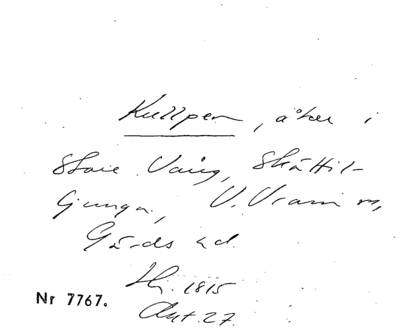 Kullpen, åker i
Store Vång, Skättil-
ljunga, V. Vram sn,
Gärds hd.
Sk. 1815
Akt 27.
Nr 7767.